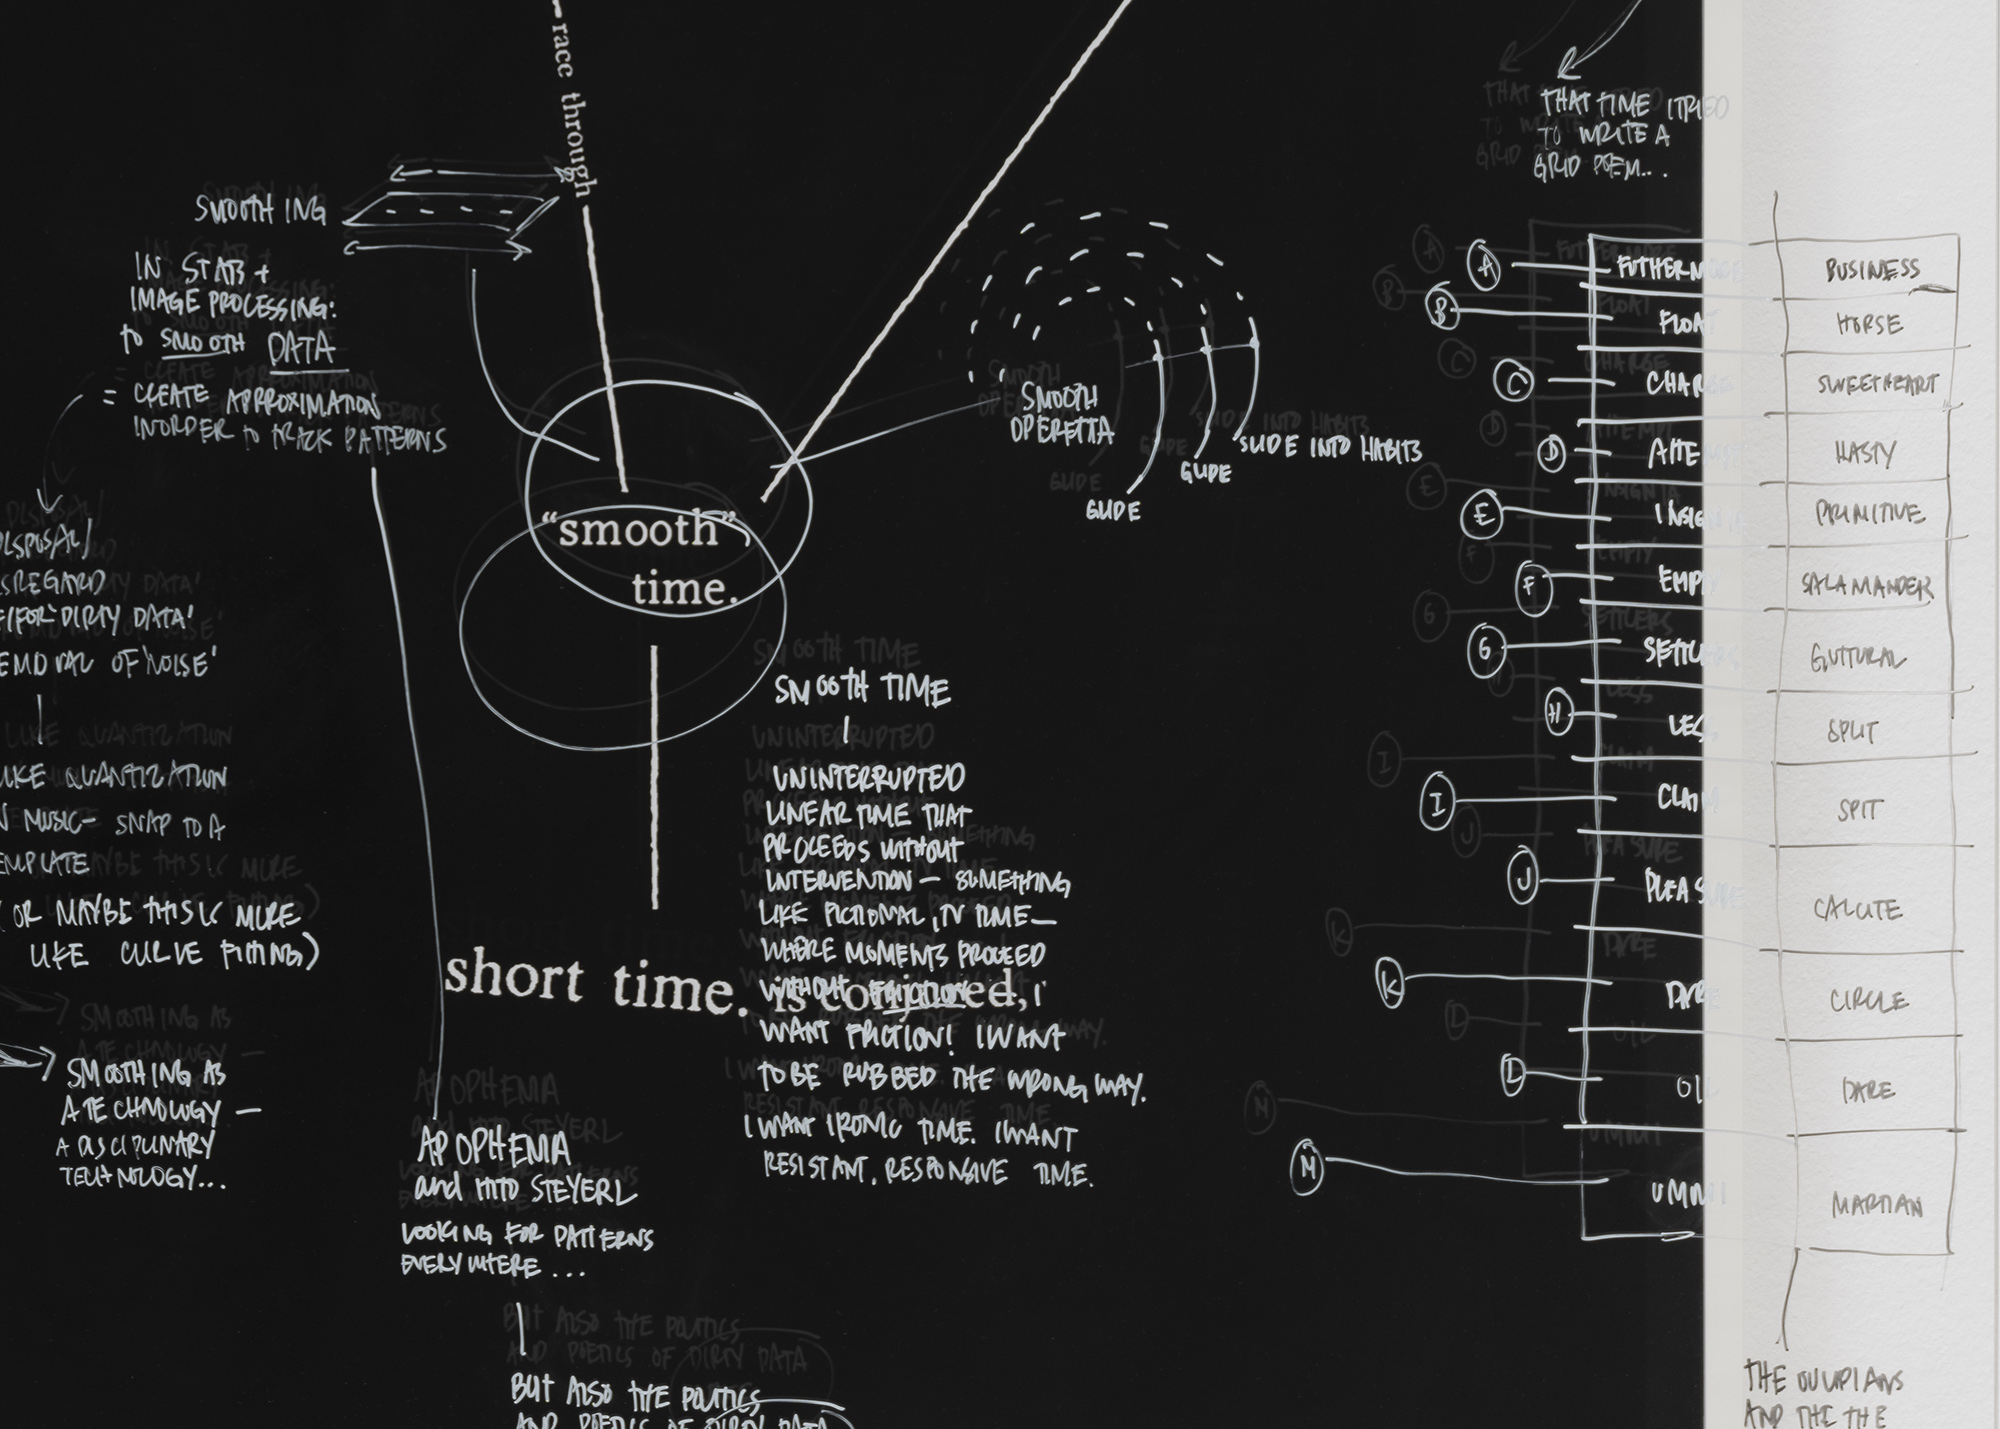 race through
SMOOTHING
IN STATS +
IMAGE PROCESSING:
TO SMOOTH DATA
= CREATE APPROXIMATION
IN ORDER TO TRACK PATTERNS
DISPOSAL/
SREGARD
/FOR 'DIRTY DATA'
EMOVAL OF 'NOISE'
LIKE QUANTIZATION
N MUSIC- SNAP TO A
EMPLATE
( OR MAYBE THIS IS MORE
LIKE CURVE FITTING)
SMOOTHING AS
A TECHNOLOGY —
A DISCIPLINARY
TECHNOLOGY...
"smooth"
time.
short time. is conjured,
APOPHENIA
and HITO STEYERL
LOOKING FOR PATTERNS
EVERYWHERE ...
BUT ALSO THE POLITICS
AND POETICS OF DIRTY DATA
SMOOTH TIME
UNINTERRUPTED
LINEAR TIME THAT
PROCEEDS WITHOUT
INTERVENTION — SOMETHING
LIKE FICTIONAL, TV TIME—
WHERE MOMENTS PROCEED
WITHOUT FRICTION. I
WANT FRICTION! I WANT
TO BE RUBBED THE WRONG WAY.
I WANT IRONIC TIME. I WANT
RESISTANT, RESPONSIVE TIME.
SMOOTH
OPERETTA
GLIDE
GLIDE
SLIDE INTO HABITS
THAT TIME I TRIED
TO WRITE A
GRID POEM...
A FUTHERMORE BUSINESS
B FLOAT HORSE
C CHARGE SWEETHEART
D ATTEMPT HASTY
E INSIGNIA PRIMITIVE
F EMPTY SALAMANDER
G SETTLERS GUTTURAL
H LESS SPLIT
I CLAIM SPIT
J PLEASURE CALCITE
K DARE CIRCLE
L OIL DARE
M MARTIAN
THE OULIPIANS
AND THE THE